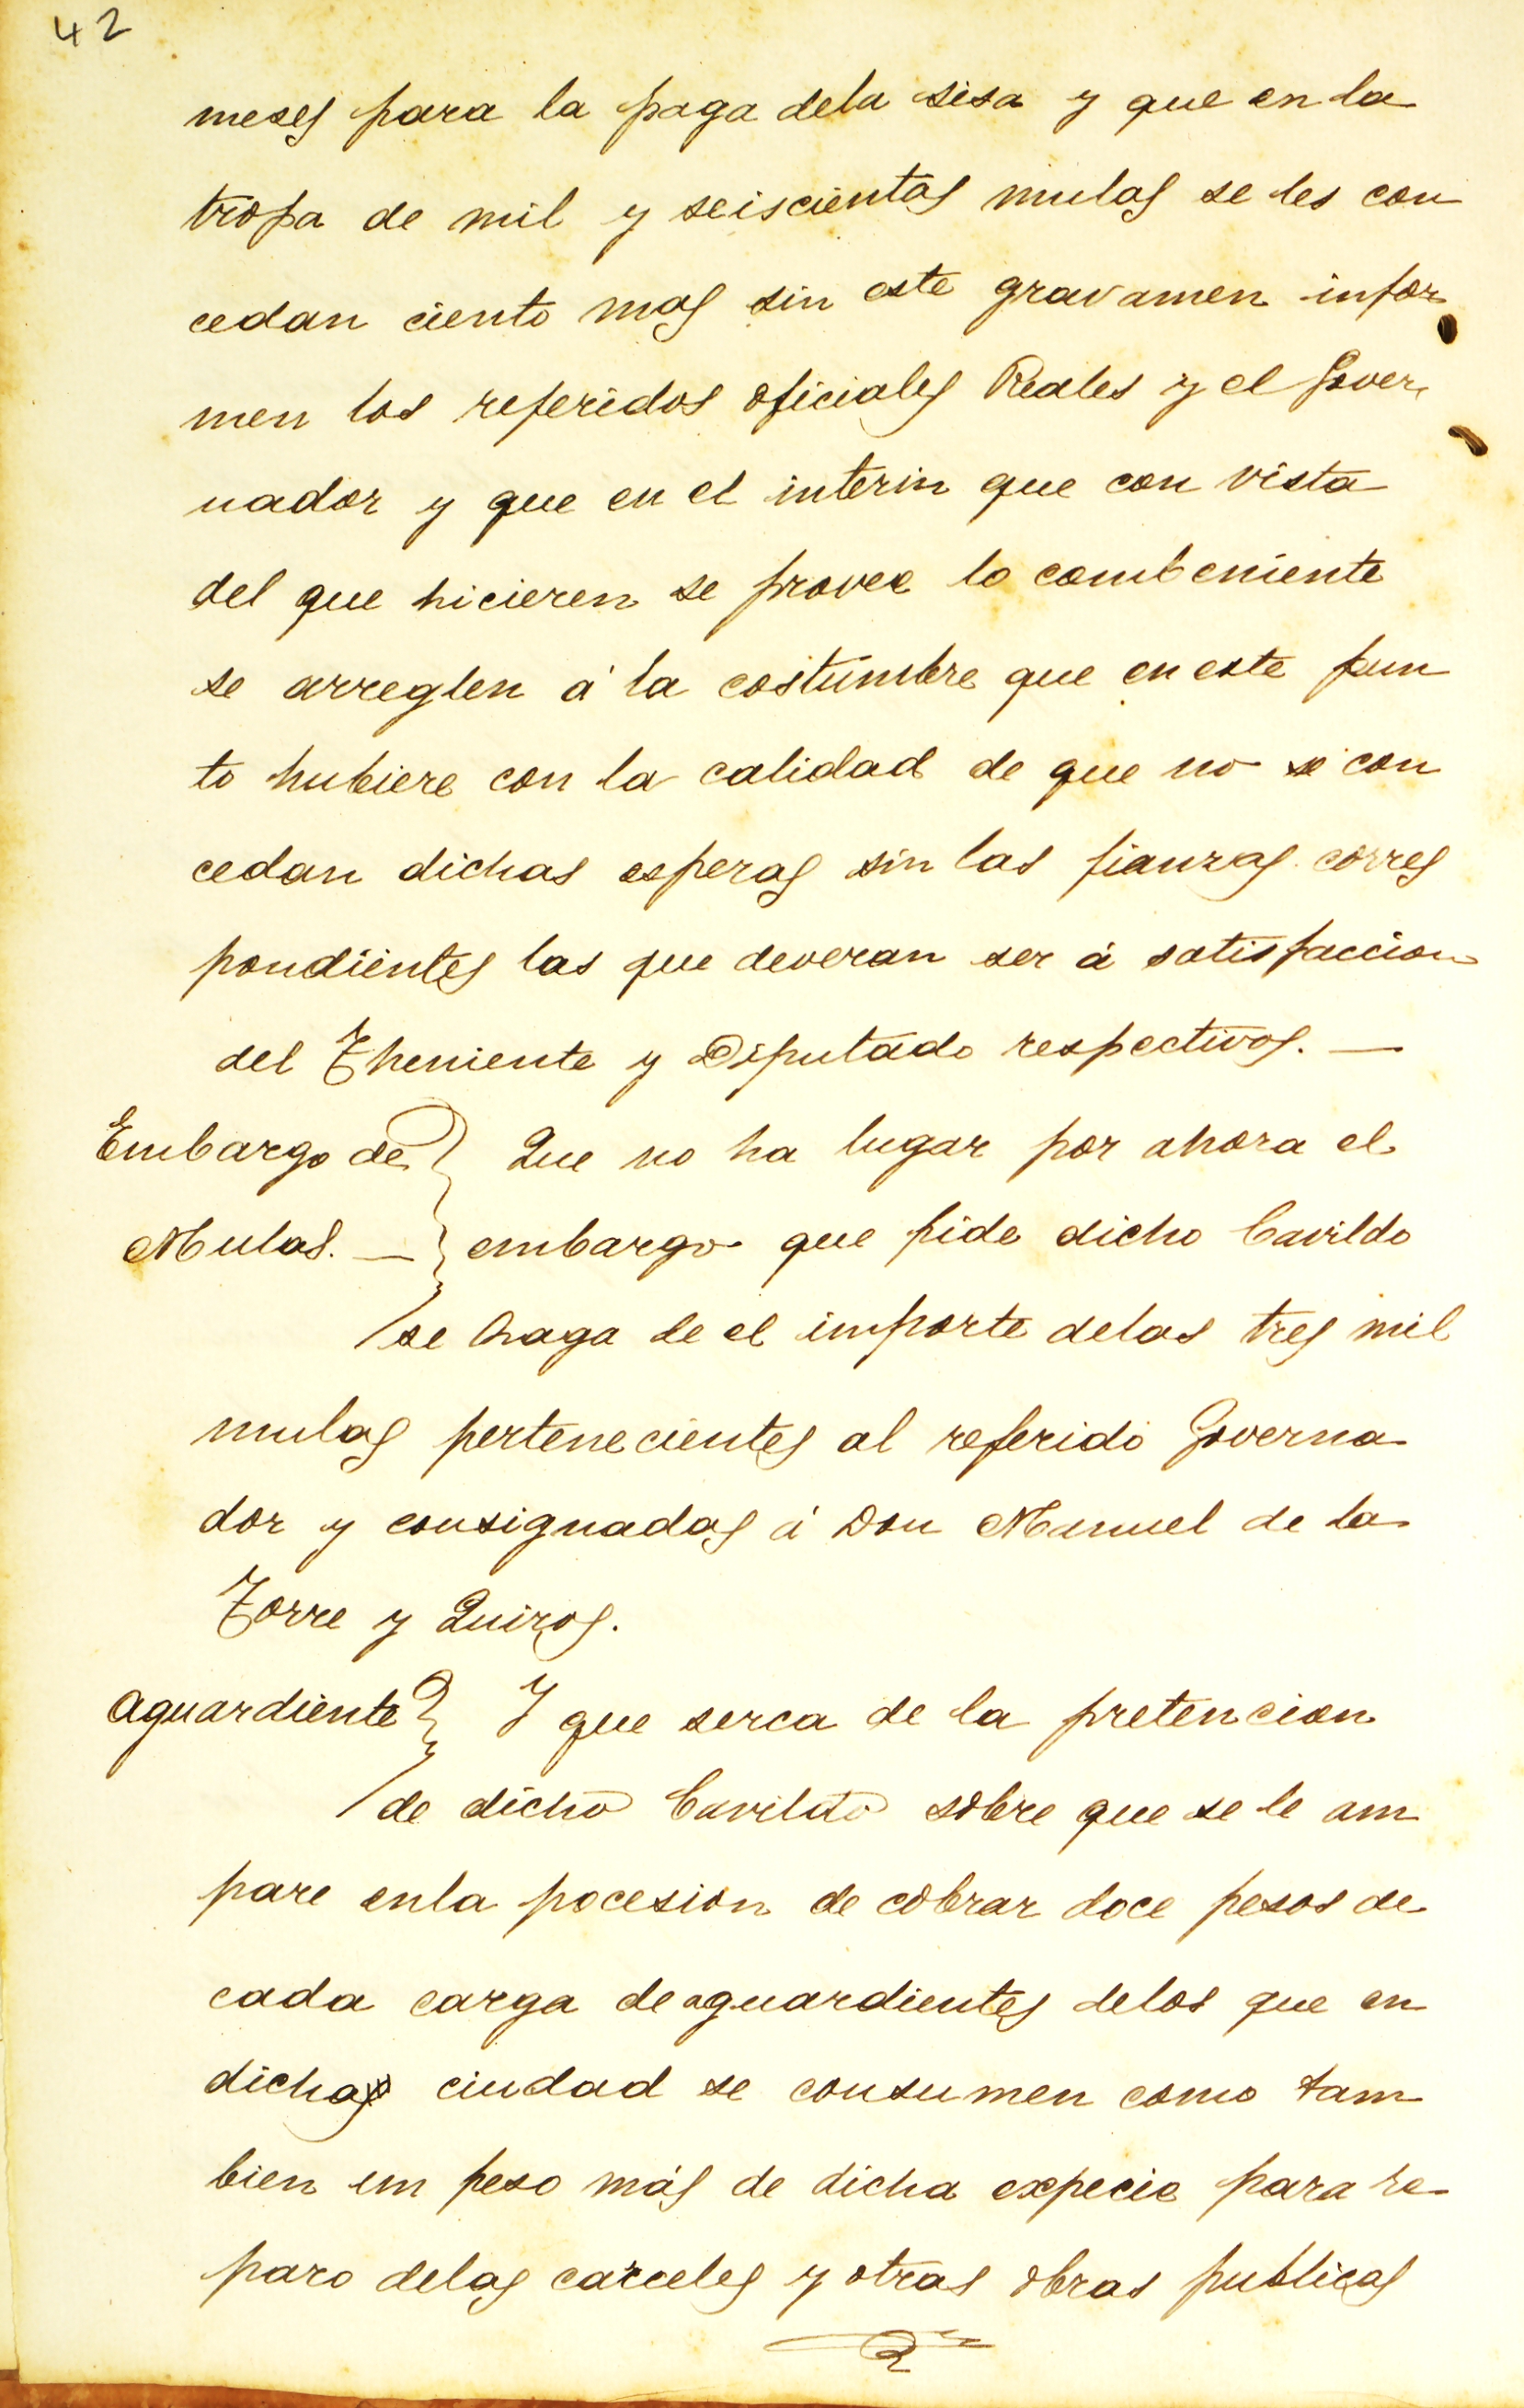 42
meses para la paga dela sisa y que en la
tropa de mil y seiscientas mulas se les con
cedan ciento mas sin este gravamen infor
men los referidos oficiales Reales y el Gover
nador y que en el interin que con vista
del que hicieren se provee lo combeniente
se arreglen á la costumbre que en este pun
to hubiere con la calidad de que no se con
cedan dichas esperas sin las fianzas corres
pondientes las que deveran ser á satisfaccion
del Theniente y Diputado respectivos. —
Embargo de } Que no ha lugar por ahora el
Mulas. — } embargo que pide dicho Cavildo
se haga de el importe delas tres mil
mulas pertenecientes al referido Governa
dor y consignadas á Don Manuel de la
Torre y Quiros.
Aguardiente } Y que serca de la pretencion
de dicho Cavildo sobre que se le am
pare enla pocesion de cobrar doce pesos de
cada carga de aguardientes delos que en
dicha ciudad se consumen como tam
bien un peso más de dicha expecie para re
paro delas carceles y otras obras publicas